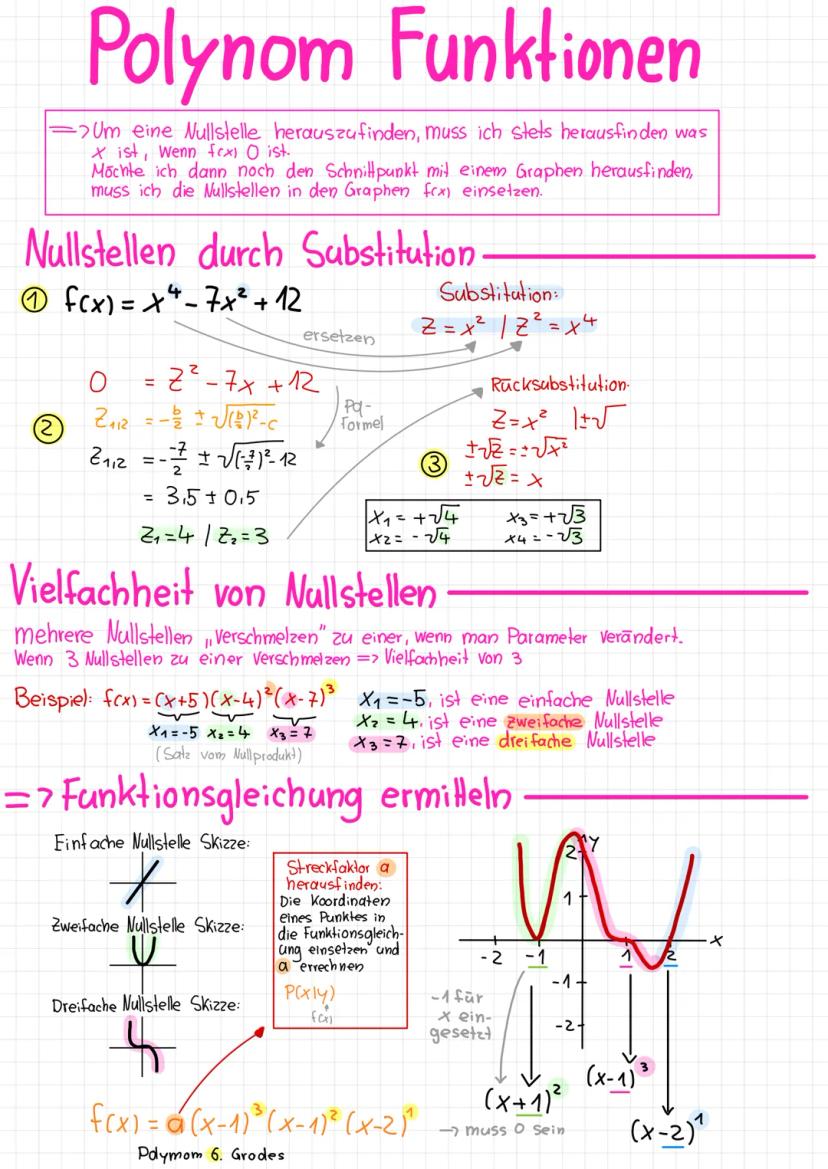 Polynom Funktionen
=> Um eine Nullstelle herauszufinden, muss ich stets herausfinden was
x ist, wenn f(x) 0 ist.
Möchte ich dann noch den Schnittpunkt mit einem Graphen herausfinden,
muss ich die Nullstellen in den Graphen f(x) einsetzen.
Nullstellen durch Substitution
① f(x) = x⁴ - 7x² + 12
Substitution:
z = x² / z² = x⁴
ersetzen
0 = z² - 7x + 12
②
z₁,₂ = -b/2 ± √(b/2)² - c
Pq-
Formel
z₁,₂ = - -7/2 ± √(-7/2)² - 12
= 3,5 ± 0,5
z₁ = 4 / z₂ = 3
Rücksubstitution:
z = x² |±√
③
±√z = ±√x²
±√z = x
x₁ = +√4 x₃ = +√3
x₂ = -√4 x₄ = -√3
Vielfachheit von Nullstellen
mehrere Nullstellen „verschmelzen“ zu einer, wenn man Parameter verändert.
Wenn 3 Nullstellen zu einer verschmelzen => Vielfachheit von 3
Beispiel: f(x) = (x+5)(x-4)²(x-7)³
x₁ = -5 x₂ = 4 x₃ = 7
(Satz vom Nullprodukt)
x₁ = -5, ist eine einfache Nullstelle
x₂ = 4, ist eine zweifache Nullstelle
x₃ = 7, ist eine dreifache Nullstelle
=> Funktionsgleichung ermitteln
Einfache Nullstelle Skizze:
Zweifache Nullstelle Skizze:
Dreifache Nullstelle Skizze:
Streckfaktor a
herausfinden:
Die Koordinaten
eines Punktes in
die Funktionsgleich-
ung einsetzen und
a errechnen
P(x|y)
f(x)
y
2
1
-2 -1 1 2 x
-1
-2
-1 für
x ein-
gesetzt
(x+1)²
-> muss 0 sein
(x-1)³
(x-2)¹
f(x) = a (x-1)³ (x-1)² (x-2)¹
Polymom 6. Grodes